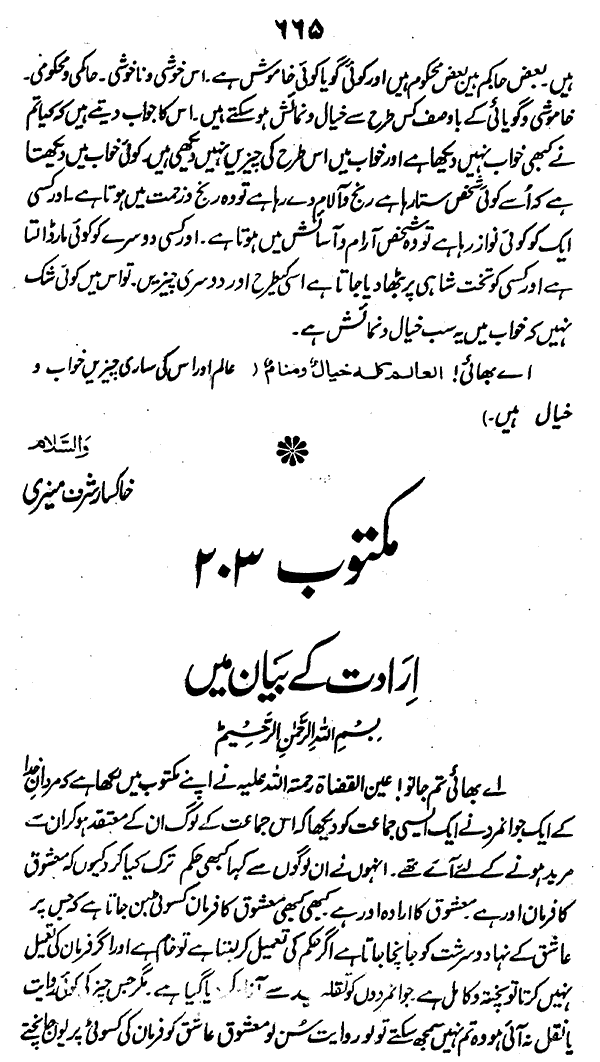 ۶۶۵
ہیں۔ بعض حاکم ہیں بعض محکوم ہیں اور کوئی گویا کوئی خاموش ہے۔ اس خوشی و ناخوشی۔ حاکمی و محکومی۔
خاموشی و گویائی کے باوصف کس طرح سے خیال و نمائش ہو سکتے ہیں۔ اس کا جواب دیتے ہیں کہ کیا تم
نے کبھی خواب نہیں دیکھا ہے اور خواب میں اس طرح کی چیزیں نہیں دیکھی ہیں۔ کوئی خواب میں دیکھتا
ہے کہ اُسے کوئی شخص ستا رہا ہے رنج و آلام دے رہا ہے تو وہ رنج و زحمت میں ہوتا ہے۔ اور کسی
ایک کو کوئی نواز رہا ہے تو وہ شخص آرام و آسائش میں ہوتا ہے۔ اور کسی دوسرے کو کوئی مار ڈالتا
ہے اور کسی کو تخت شاہی پر بٹھا دیا جاتا ہے اسی کیطرح اور دوسری چیزیں۔ تو اس میں کوئی شک
نہیں کہ خواب میں یہ سب خیال و نمائش ہے۔
اے بھائی! العالم کلہ خیالٌ ومنامٌ ( عالم اور اس کی ساری چیزیں خواب و
خیال ہیں۔)
والسّلام
خاکسار شرف منیری
مکتوب ۲۰۳
اِرَادت کے بیَان میں
بِسْمِ اللهِ الرَّحْمٰنِ الرَّحِیْمِ
اے بھائی تم جانو! عین القضاۃ رحمتہ اللہ علیہ نے اپنے مکتوب میں لکھا ہے کہ مردانِ خدا
کے ایک جوانمرد نے ایک ایسی جماعت کو دیکھا کہ اس جماعت کے لوگ ان کے معتقد ہو کر ان سے
مرید ہونے کے لئے آئے تھے۔ انہوں نے ان لوگوں سے کہا کبھی حکم ترک کیا کرو کیوں کہ معشوق
کا فرمان اور ہے معشوق کا ارادہ اور ہے کبھی کبھی معشوق کا فرمان کسوٹی بن جاتا ہے کہ جس پر
عاشق کے نہاد و سرشت کو جانچا جاتا ہے اگر حکم کی تعمیل کر لیتا ہے تو خام ہے اور اگر فرمان کی تعمیل
نہیں کرتا تو پختہ و کامل ہے۔ جوانمردوں کو دیا گیا ہے۔ مگر جس چیز کی کوئی روایت
یا نقل نہ آئی ہو وہ تم نہیں سمجھ سکتے تو لو روایت سُن لو معشوق عاشق کو فرمان کی کسوٹی پر یوں جانچتے